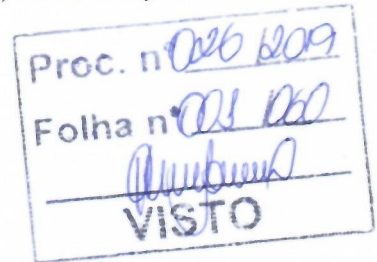 Proc. nº 026/2019
Folha nº 001 060
VISTO